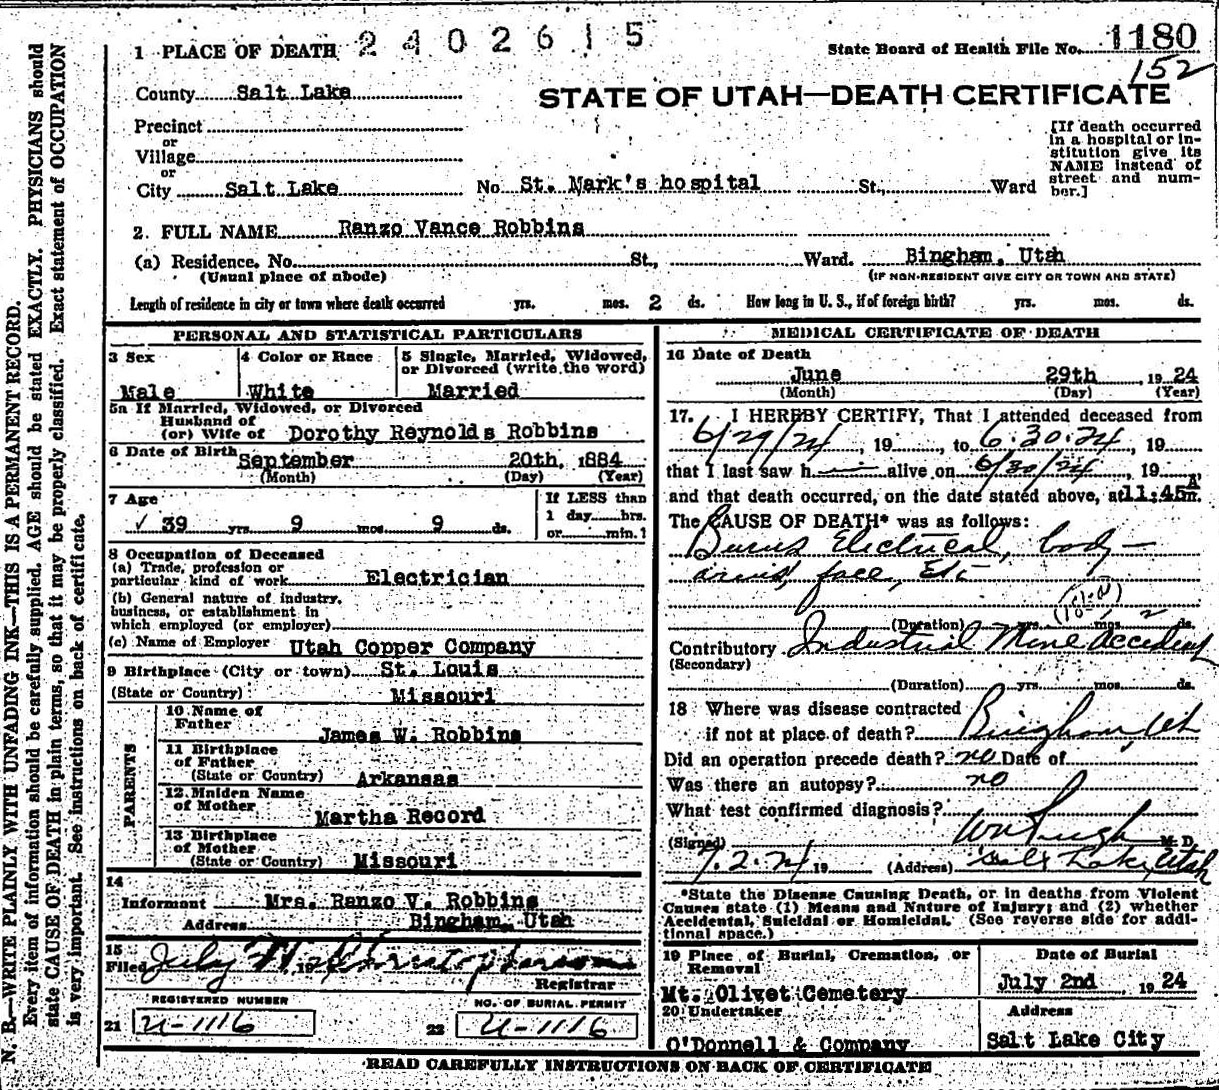 1 PLACE OF DEATH 2402615
State Board of Health File No. 1180
152
County Salt Lake
STATE OF UTAH—DEATH CERTIFICATE
Precinct
or
Village
or
City Salt Lake No St. Mark's hospital St., Ward
[If death occurred
in a hospital or in-
stitution give its
NAME instead of
street and num-
ber.]
2. FULL NAME Ranzo Vance Robbins
(a) Residence. No. St., Ward. Bingham, Utah
(Usual place of abode) (IF NON-RESIDENT GIVE CITY OR TOWN AND STATE)
Length of residence in city or town where death occurred yrs. mos. 2 ds. How long in U. S., if of foreign birth? yrs. mos. ds.
PERSONAL AND STATISTICAL PARTICULARS
3 Sex 4 Color or Race 5 Single, Married, Widowed,
or Divorced (write the word)
Male White Married
5a If Married, Widowed, or Divorced
Husband of
(or) Wife of Dorothy Reynolds Robbins
6 Date of Birth September 20th, 1884
(Month) (Day) (Year)
7 Age If LESS than
1 day......hrs.
✓ 39 yrs. 9 mos. 9 ds. or......min.?
8 Occupation of Deceased
(a) Trade, profession or
particular kind of work Electrician
(b) General nature of industry,
business, or establishment in
which employed (or employer)
(c) Name of Employer Utah Copper Company
9 Birthplace (City or town) St. Louis
(State or Country) Missouri
PARENTS
10 Name of
Father James W. Robbins
11 Birthplace
of Father
(State or Country) Arkansas
12 Maiden Name
of Mother Martha Record
13 Birthplace
of Mother
(State or Country) Missouri
14
Informant Mrs. Ranzo V. Robbins
Address Bingham, Utah
15
Filed July 19
Registrar
REGISTERED NUMBER NO. OF BURIAL PERMIT
21 U-1116 22 U-1116
MEDICAL CERTIFICATE OF DEATH
16 Date of Death
June 29th, 1924
(Month) (Day) (Year)
17. I HEREBY CERTIFY, That I attended deceased from
6/29/24, 19 , to 6.30.24, 19
that I last saw h alive on 6/30/24, 19
and that death occurred, on the date stated above, at 11:45 A m.
The CAUSE OF DEATH* was as follows:
Burns Electrical, body—
arms, face, Etc
(Duration) yrs. mos. 2 ds.
Contributory Industrial Mine Accident
(Secondary)
(Duration) yrs. mos. ds.
18 Where was disease contracted
if not at place of death? Bingham, Utah
Did an operation precede death? no Date of
Was there an autopsy? no
What test confirmed diagnosis?
(Signed) Wm Pugh M. D.
7.2.24 19 (Address) Salt Lake, Utah
*State the Disease Causing Death, or in deaths from Violent
Causes state (1) Means and Nature of Injury; and (2) whether
Accidental, Suicidal or Homicidal. (See reverse side for addi-
tional space.)
19 Place of Burial, Cremation, or
Removal
Date of Burial
Mt. Olivet Cemetery July 2nd, 1924
20 Undertaker Address
O'Donnell & Company Salt Lake City
READ CAREFULLY INSTRUCTIONS ON BACK OF CERTIFICATE
N. B.—WRITE PLAINLY WITH UNFADING INK—THIS IS A PERMANENT RECORD.
Every item of information should be carefully supplied. AGE should be stated EXACTLY. PHYSICIANS should
state CAUSE OF DEATH in plain terms, so that it may be properly classified. Exact statement of OCCUPATION
is very important. See instructions on back of certificate.